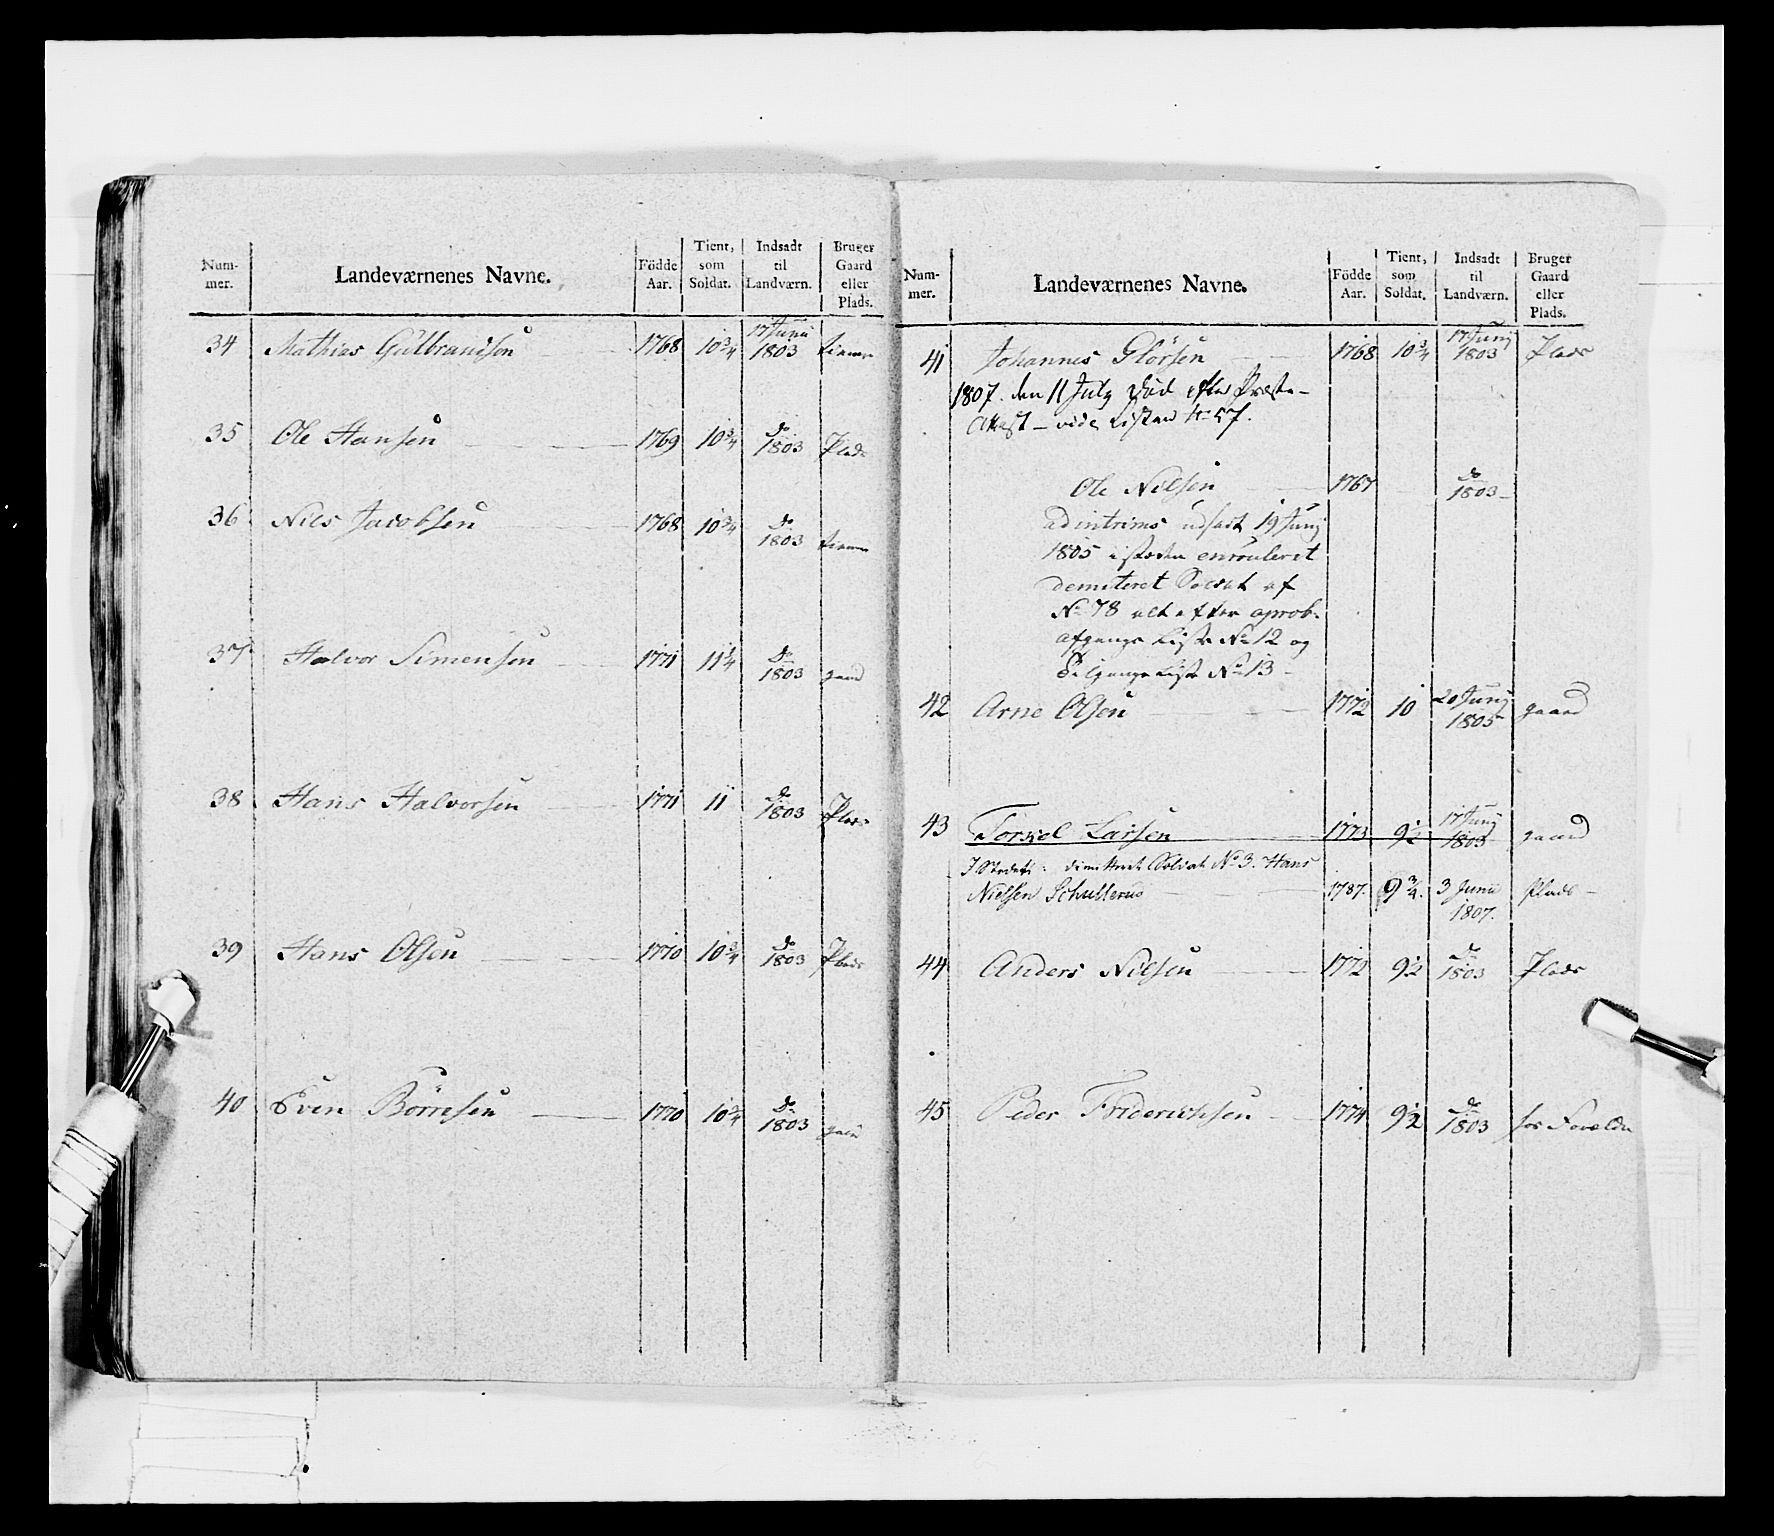 Num-
mer.
Landeværnenes Navne.
Födde
Aar.
Tient,
som
Soldat.
Indsadt
til
Landværn.
Bruger
Gaard
eller
Plads.
34 Mathias Gulbrandsen 1768 10 3/4 17 Junii 1803 tiener
35 Ole Hansen 1769 10 3/4 do 1803 Plads
36 Nils Jacobsen 1768 10 3/4 do 1803 tiener
37 Halvor Simensen 1771 11 1/4 do 1803 gaard
38 Hans Halvorsen 1771 11 do 1803 Plads
39 Hans Olsen 1770 10 3/4 do 1803 Plads
40 Even Börresen 1770 10 3/4 do 1803 gaard
Num-
mer.
Landeværnenes Navne.
Födde
Aar.
Tient,
som
Soldat.
Indsadt
til
Landværn.
Bruger
Gaard
eller
Plads.
41 Johannes Glörsen 1768 10 3/4 17 Junij 1803 Plads
1807. den 11 July död efter Præste-
Attest - vide Listen No 57.
Ole Nilsen 1767 do 1803
ad intrims udsadt 19 Junij
1805 istæden enrouleret
demiteret Soldat af
No 78 alt efter aprob.
afgangs Liste No 12 og
Tilgangs Liste No 13 -
42 Arne Olsen 1772 10 20 Junij 1805 gaard
43 Torkel Larsen 1773 9 1/2 17 Junij 1803 gaard
I Stedet: dimitteret Soldat No 3. Hans
Nielsen Schullerud 1787. 9 3/4. 3 Junii 1807. Plads -
44 Anders Nilsen 1772 9 1/2 do 1803 Plads
45 Peder Friderichsen 1774 9 1/2 do 1803 hos Forældre